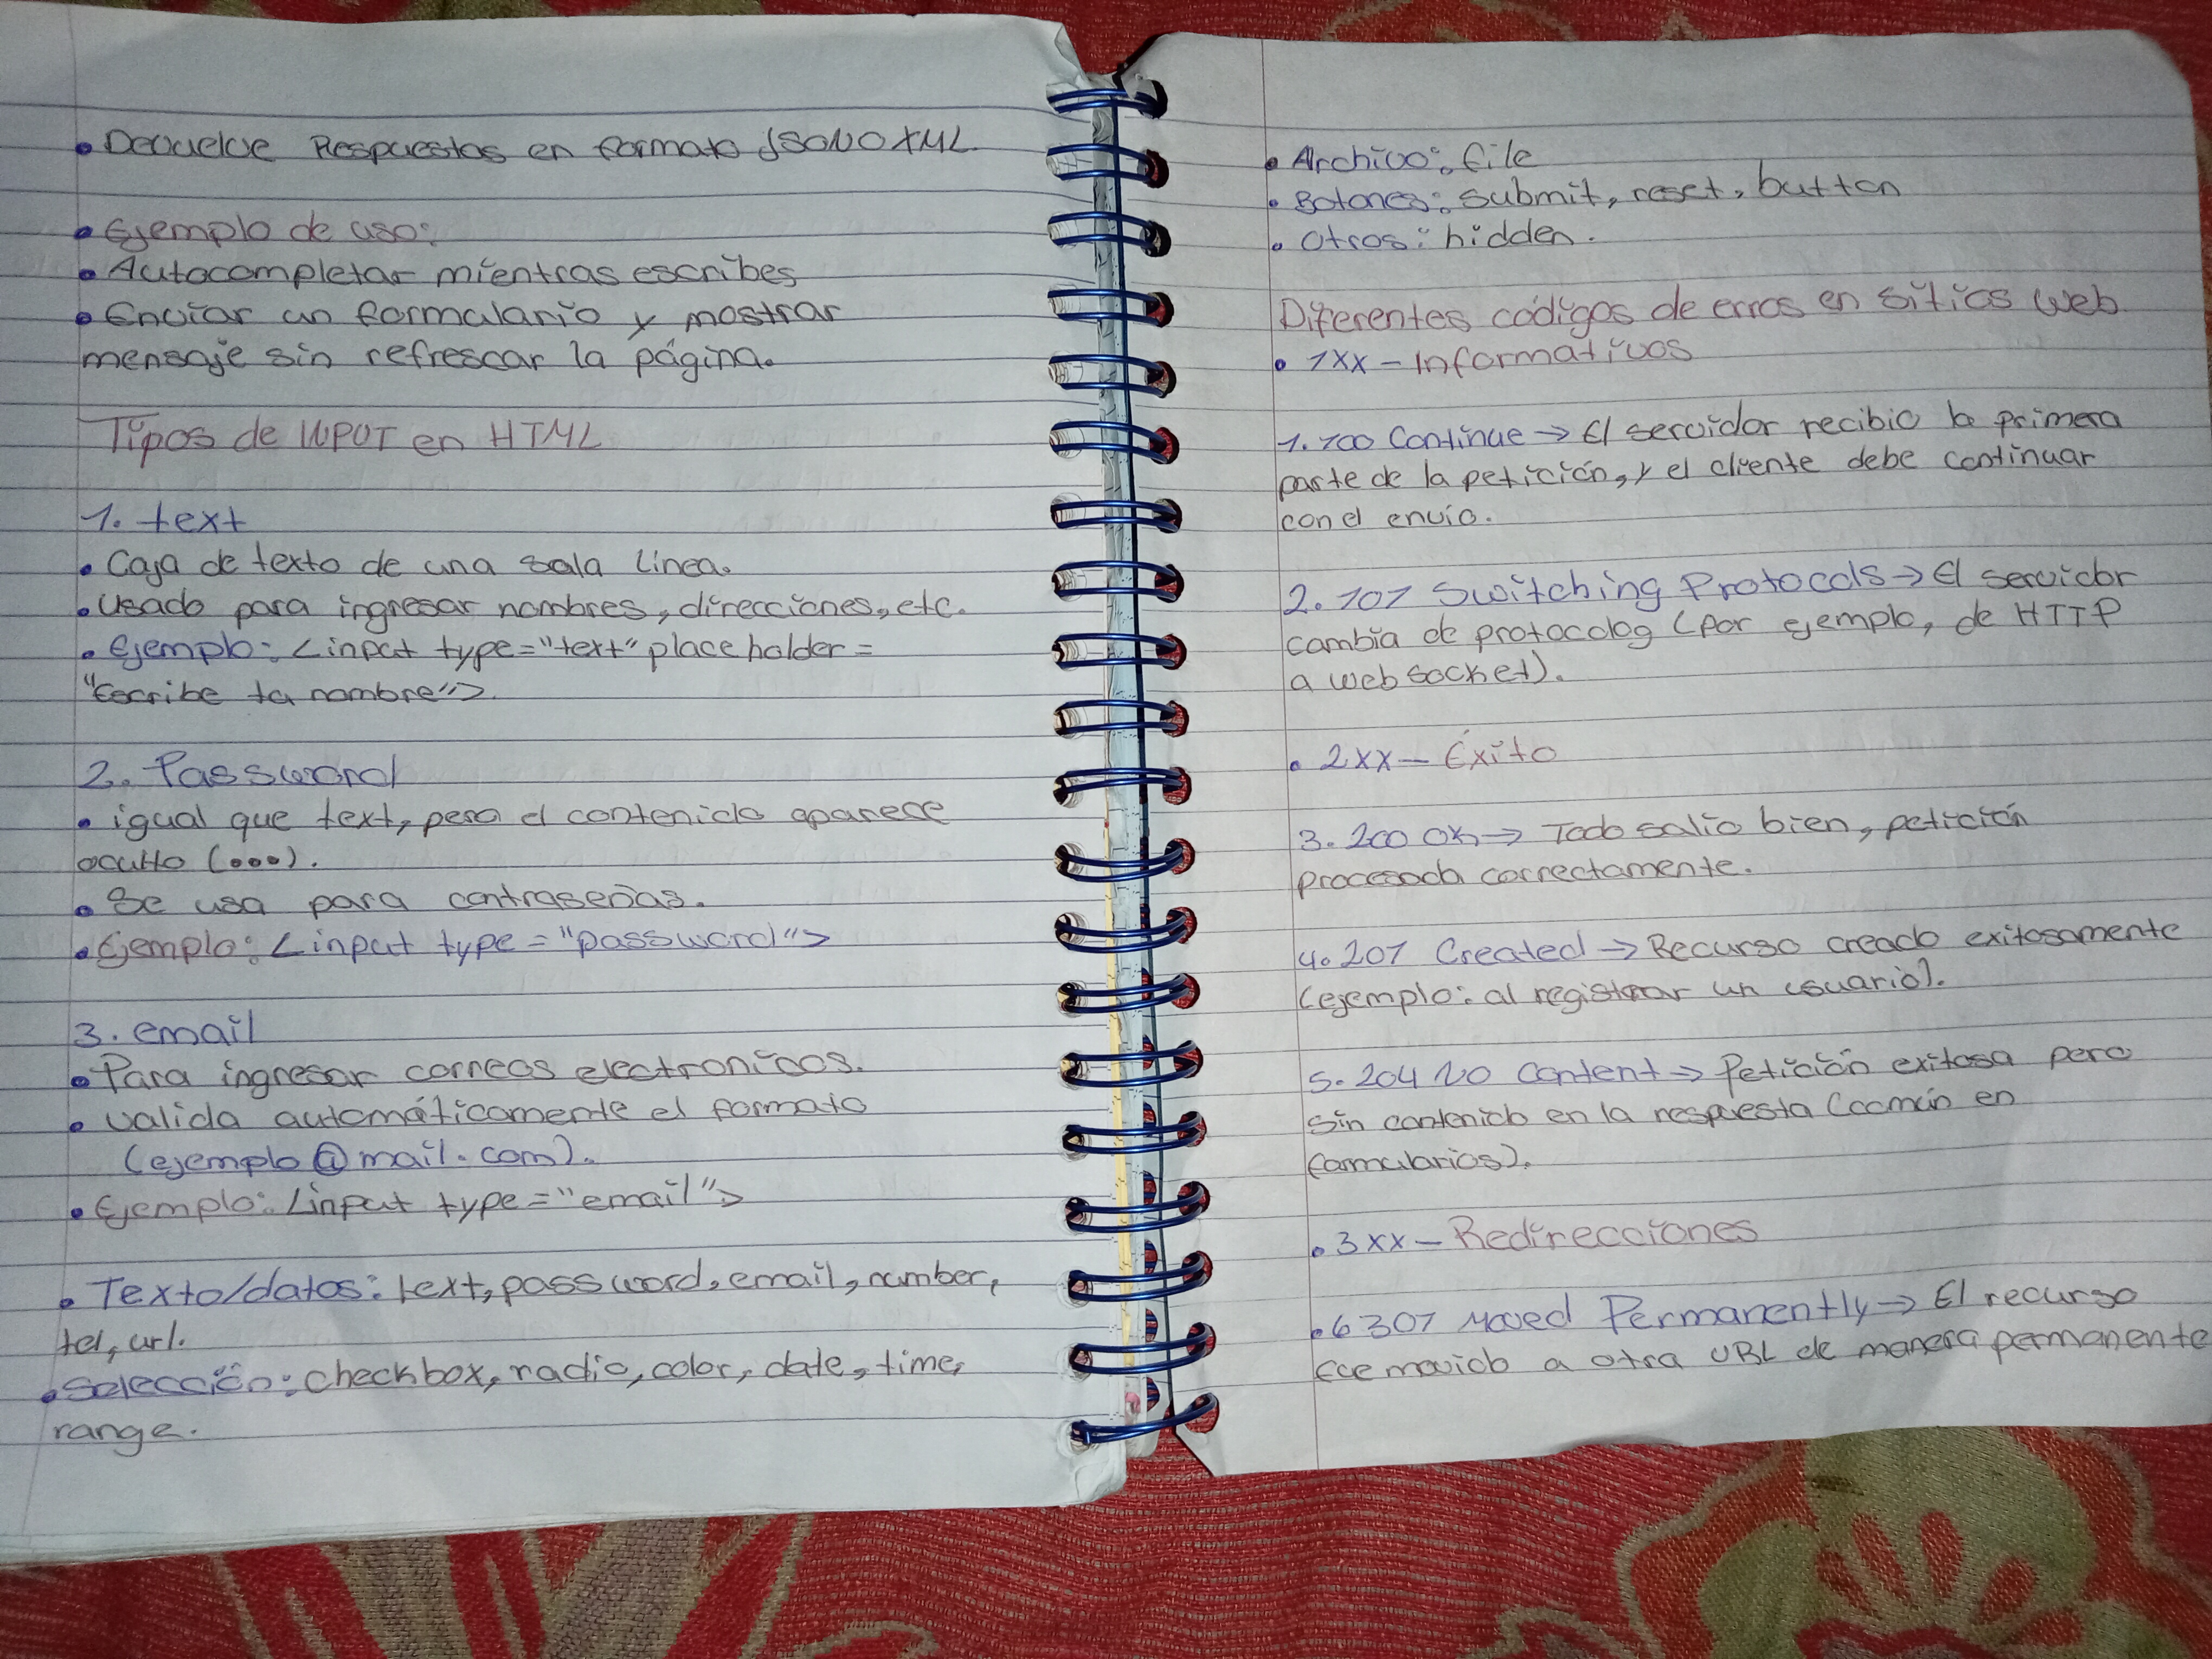 • Devuelve Respuestas en formato JSON O XML.
• Ejemplo de uso:
• Autocompletar mientras escribes
• Enviar un formulario y mostrar
mensaje sin refrescar la página.
Tipos de INPUT en HTML
1. text
• Caja de texto de una sola Linea.
• Usado para ingresar nombres, direcciones, etc.
• Ejemplo: <input type="text" place holder =
"Escribe tu nombre">.
2. Password
• igual que text, pero el contenido aparece
oculto (•••).
• Se usa para contraseñas.
• Ejemplo: <input type="password">
3. email
• Para ingresar correos electronicos.
• valida automáticamente el formato
(ejemplo@mail.com).
• Ejemplo: <input type="email">
• Texto/datos: text, password, email, number,
tel, url.
• Selección: checkbox, radio, color, date, time,
range.
• Archivo: file
• Botones: submit, reset, button
• Otros: hidden.
Diferentes códigos de erros en sitios web
• 1XX - Informativos
1. 100 Continue → El servidor recibio la primera
parte de la petición, y el cliente debe continuar
con el envio.
2. 101 Switching Protocols → El servidor
cambia de protocolog (por ejemplo, de HTTP
a web socket).
• 2XX - Éxito
3. 200 OK → Todo salio bien, petición
procesada correctamente.
4. 201 Created → Recurso creado exitosamente
(ejemplo: al registrar un usuario).
5. 204 No Content → Petición exitosa pero
sin contenido en la respuesta (común en
formularios).
• 3XX - Redirecciones
• 6 301 Moved Permanently → El recurso
fue movido a otra URL de manera permanente